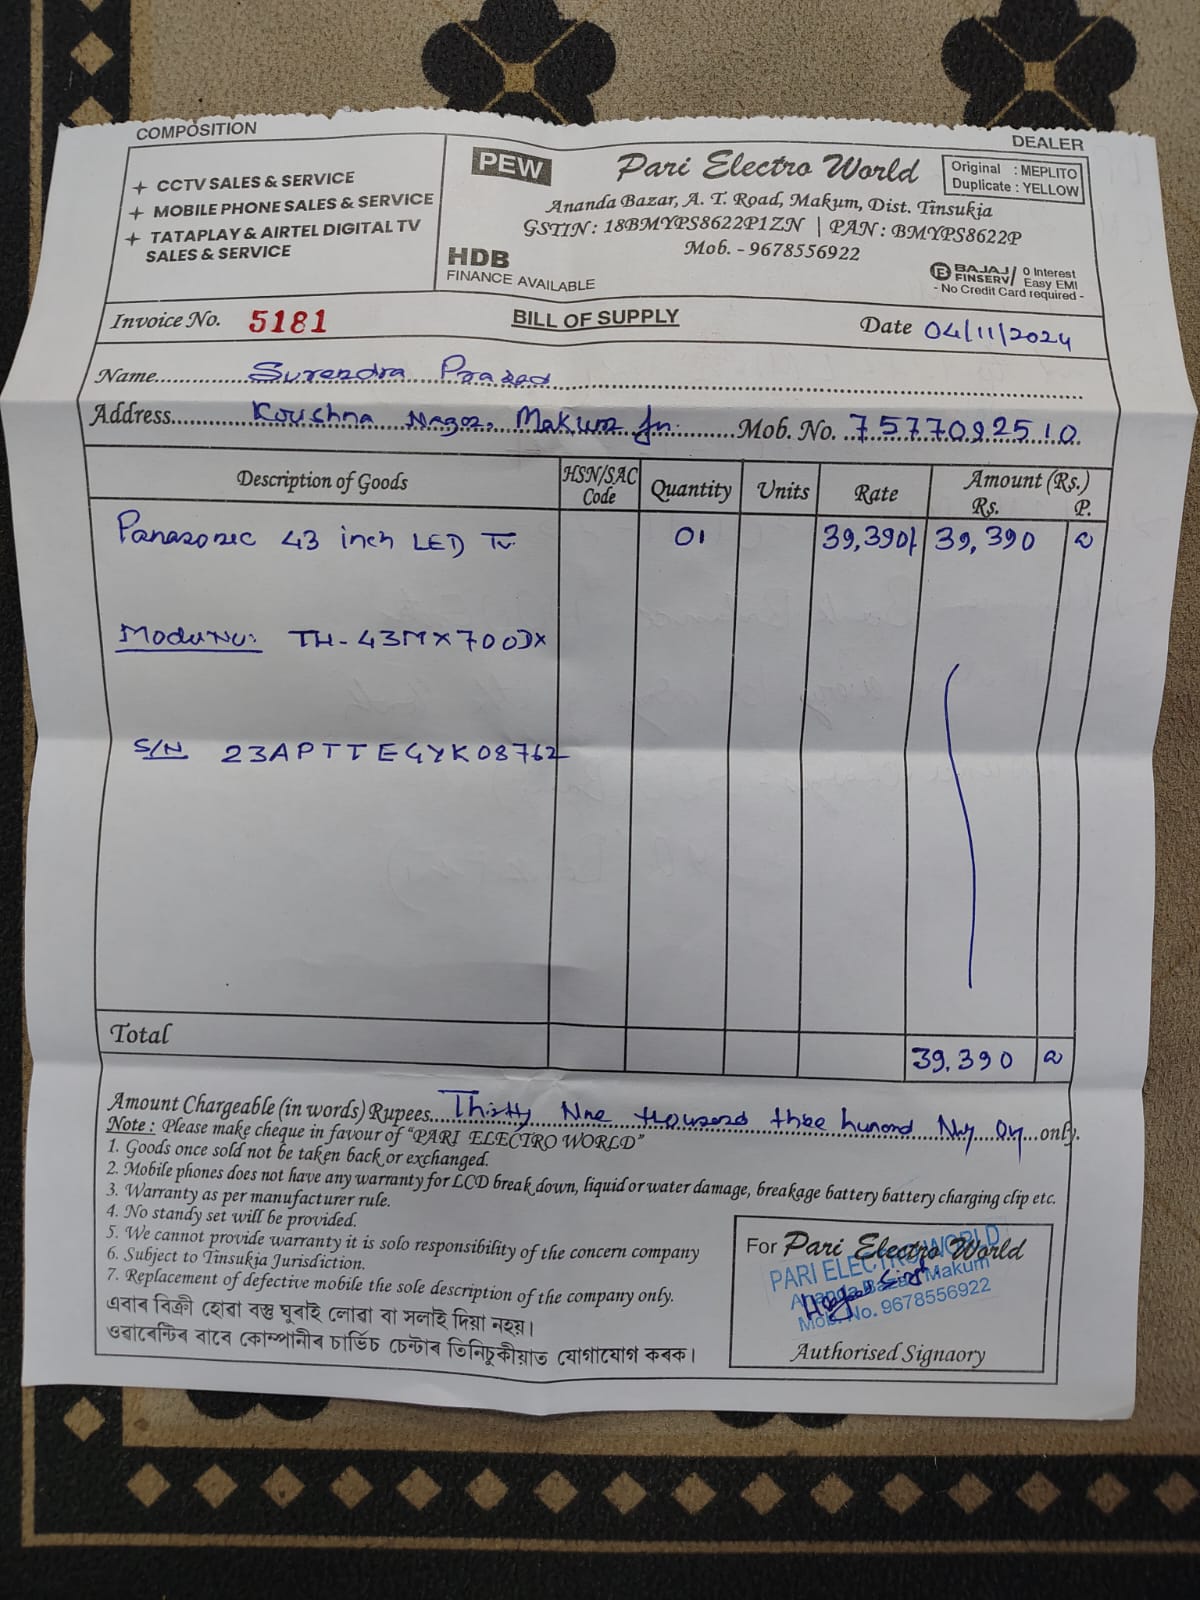 COMPOSITION
DEALER
CCTV SALES & SERVICE
MOBILE PHONE SALES & SERVICE
TATAPLAY & AIRTEL DIGITAL TV
SALES & SERVICE
PEW
Pari Electro World
Original : MEPLITO
Duplicate : YELLOW
Ananda Bazar, A. T. Road, Makum, Dist. Tinsukia
GSTIN : 18BMYPS8622P1ZN | PAN : BMYPS8622P
Mob. - 9678556922
HDB
FINANCE AVAILABLE
BAJAJ FINSERV / 0 Interest Easy EMI
- No Credit Card required -
Invoice No. 5181 BILL OF SUPPLY Date 04/11/2024
Name Surendra Prasad
Address Makum Jn. Mob. No. 7577092510
Description of Goods HSN/SAC Code Quantity Units Rate Amount (Rs.) Rs. P.
Panasonic 43 inch LED Tv. 01 39,390/ 39,390
TH-43MX700DX
S/N 23APTTEGYK08762
Total 39,390
Amount Chargeable (in words) Rupees Thirty Nine thousand three only.
Note : Please make cheque in favour of "PARI ELECTRO WORLD"
1. Goods once sold not be taken back or exchanged.
2. Mobile phones does not have any warranty for LCD break down, liquid or water damage, breakage battery battery charging clip etc.
3. Warranty as per manufacturer rule.
4. No standy set will be provided.
5. We cannot provide warranty it is solo responsibility of the concern company
6. Subject to Tinsukia Jurisdiction.
7. Replacement of defective mobile the sole description of the company only.
এবাৰ বিক্ৰী হোৱা বস্তু ঘূৰাই লোৱা বা সলাই দিয়া নহয়।
ওৱাৰেন্টিৰ বাবে কোম্পানীৰ চাৰ্ভিচ চেন্টাৰ তিনিচুকীয়াত যোগাযোগ কৰক।
For Pari Electro World
PARI ELECTRO WORLD
Ananda Bazar Makum
Mob. No. 9678556922
Authorised Signaory